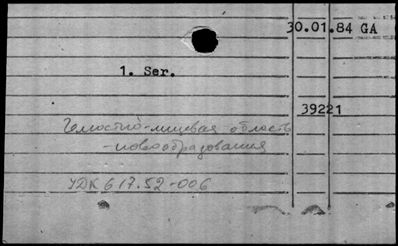 30.01.84 GA
1. Ser.
39221
Челюстно-лицевая область
-новообразования
УДК 617.52-006